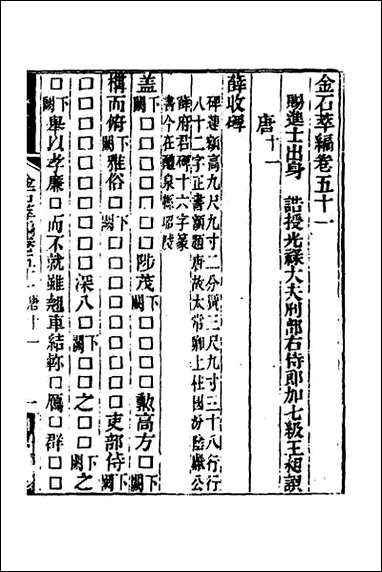 金石萃編卷五十一
賜進士出身 誥授光祿大夫刑部右侍郎加七級王昶譔
唐十一
薛收碑
碑連額高九尺九寸二分廣三尺九寸三十八行行
八十二字正書額題唐故太常卿上柱國汾陰獻公
薛府君碑十六字篆
書今在醴泉縣昭陵
蓋下闕□□□□□陟茂下闕□□□勲高方□□下闕
構而俯下闕雅俗□□下闕□□□□□□吏部侍下闕
□□□□□□□□深八□下闕□□□之□□下闕之
□下闕舉以孝廉□而不就雖翹車結軫□鴈□群□□
金石萃編卷五十一 唐十一 一